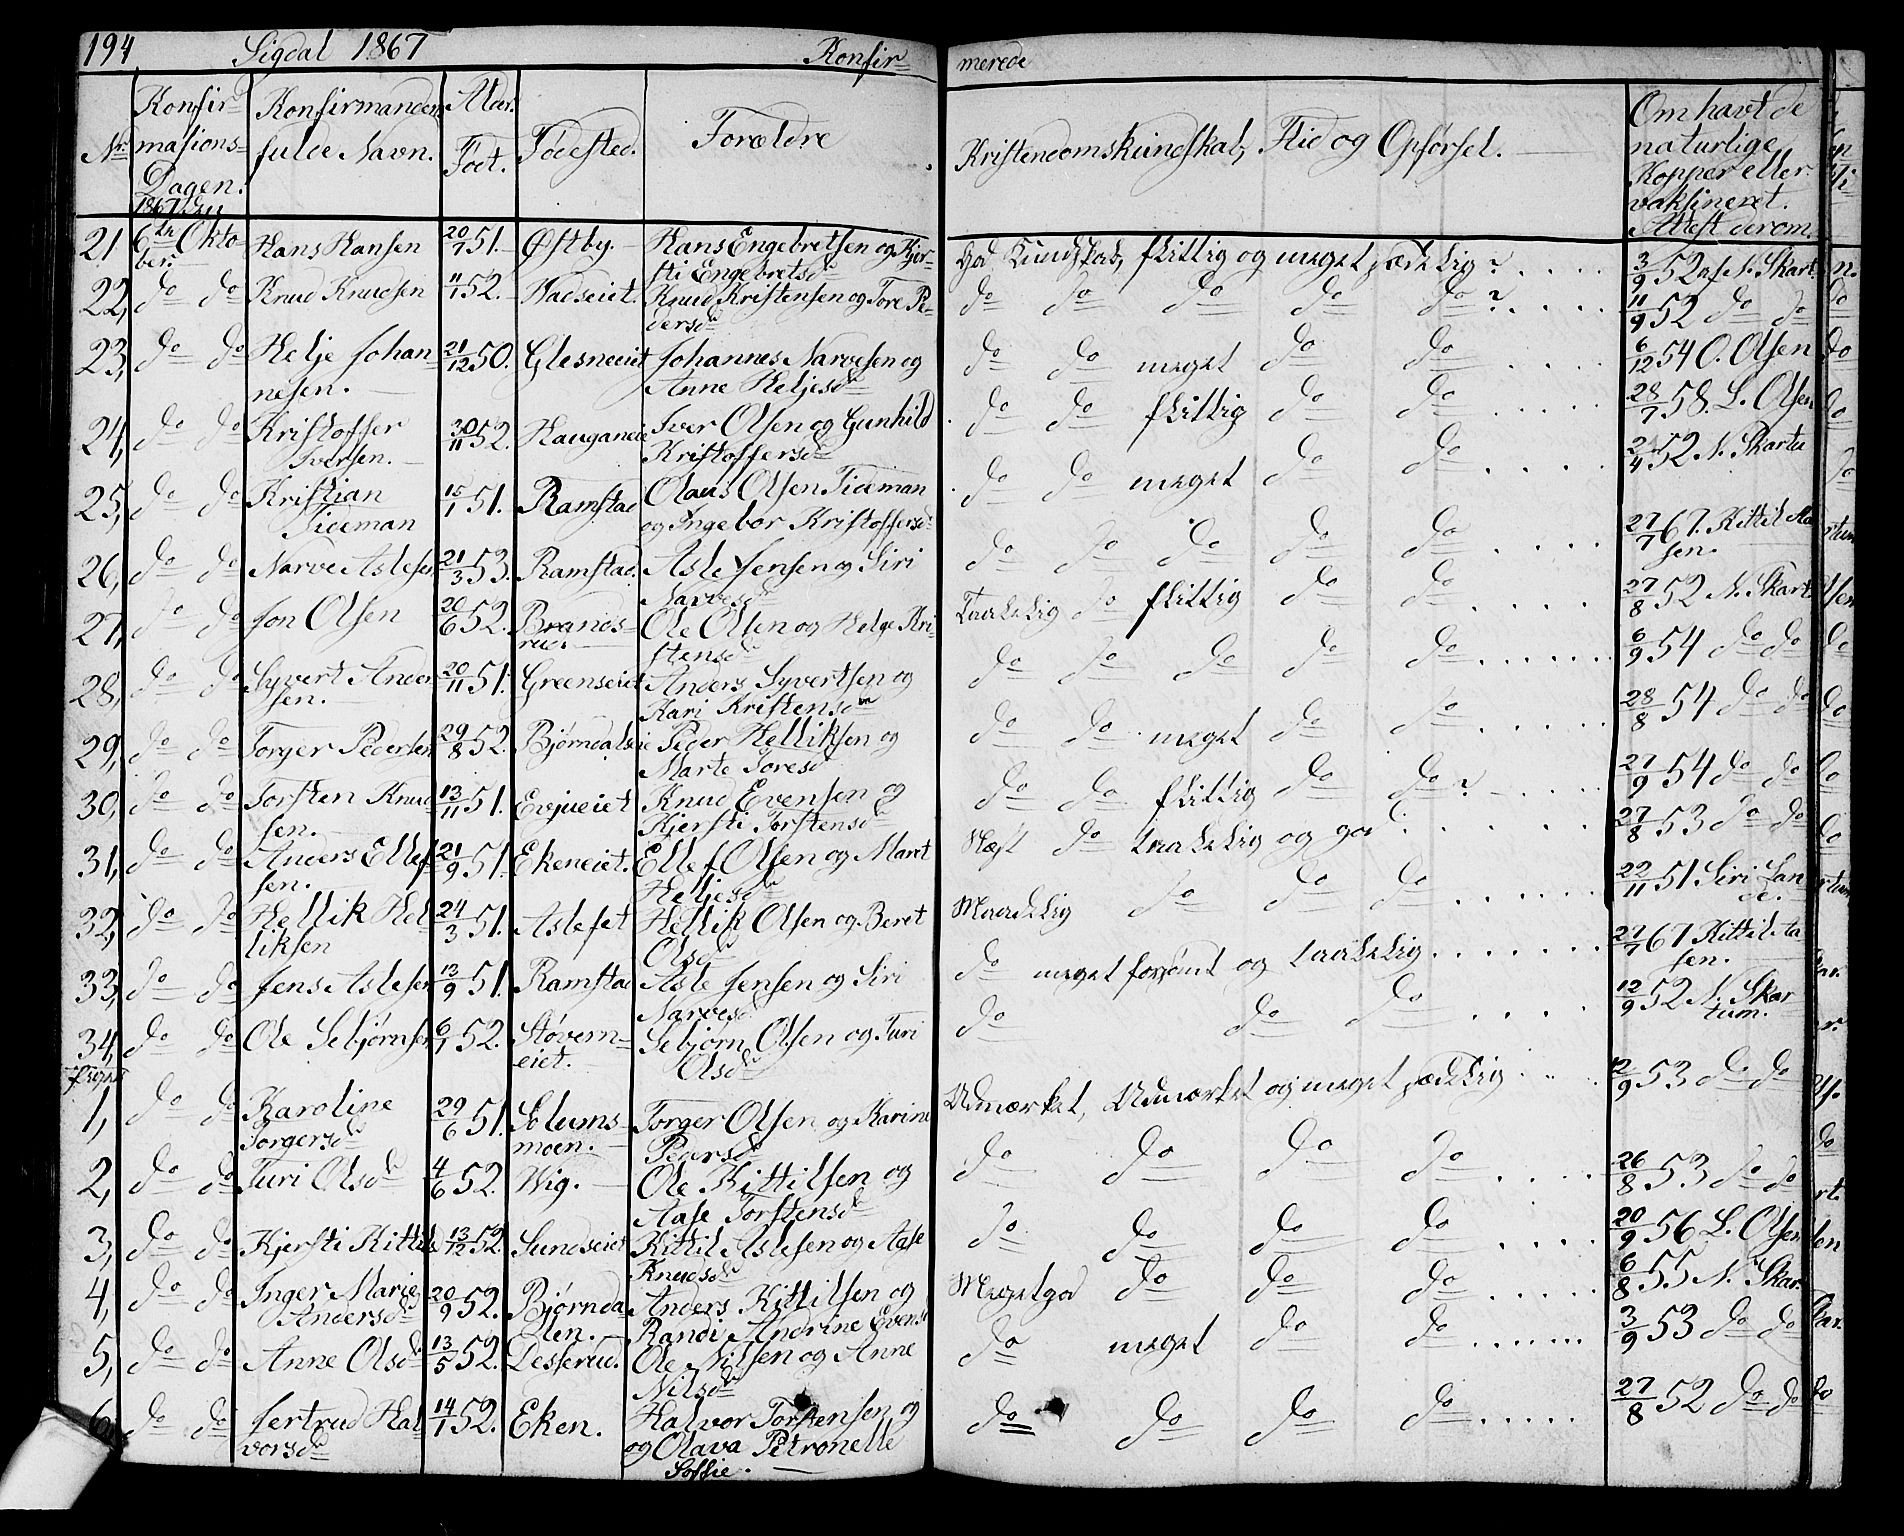 194 Sigdal 1867 Konfir=
merede
Nr Konfir=
masions=
Dagen.
Konfirmandens
fulde Navn.
Alder.
Født.
Fødested.
Forældre
Kristendomskundskab, Flid og Opførsel.
Om havt de
naturlige
Kopper eller
vaksineret.
Attest derom.
21 6te Okto-
ber. Hans Hansen 20/7 51. Østby. Hans Engebretsen og Kjer-
sti Engebretsd
God Kundskab, flittig og meget sædelig? 3/9 52 af N. Skart
22, do do Knud Knudsen 11/1 52. Hadseiet. Knud Kristensen og Tore Pe-
dersd
do do do do do? 11/9 52 do do
23, do do Helje Johan
nesen. 21/12 50. Glesneeiet Johannes Narvesen og
Anne Heljesd
do do meget do do 6/12 54 O. Olsen
24, do do Kristoffer
Iversen. 30/11 52. Iver Olsen og Gunhild
Kristoffersd
do do flittig do do 28/7 58. L. Olsen
25, do do Kristian
Tideman 15/1 51. Ramstad Olaus Olsen Tideman
og Ingebor Kristoffersd
do do meget do do 52 N. Skartu
26, do do Narve Aslesen 21/3 53. Ramstad. Asle Jensen og Siri
Narvesd
do do do do do 27/7 67. Kittil Aa
sen.
27, do do Jon Olsen 20/6 52. Brands-
rud. Ole Olsen og Helge Kri-
stensd
Taalelig do flittig do do 27/8 52 N. Skart
28, do do Syvert Ander
sen. 20/11 51. Greenseiet Anders Syvertsen og
Kari Kristensd
do do do do do 6/9 54 do do
29, do do Torger Pedersen 29/8 52. Bjørndalseie Peder Helliksen og
Marte Toresd
do do meget do do 28/8 54 do do
30, do do Torsten Knud
sen. 13/11 51. Evjueiet Knud Evensen og
Kjersti Torstensd
do do flittig do do? 27/9 54 do do
31, do do Anders Ellef
sen. 21/9 51. Ekeneiet. Ellef Olsen og Maret
Heljesd
Næst do taalelig og god 27/8 53 do do
32, do do Hellik Hel
liksen 24/3 51. Aslefet Hellik Olsen og Beret
Olsd
Maadelig do do do 22/11 51 Siri Lan
de.
33, do do Jens Aslesen 13/9 51. Ramstad Asle Jensen og Siri
Narvesd
do meget forsømt og taalelig 27/7 67 Kittil Aa
sen.
34, do do Ole Sebjørnsen 6/1 52. Støvern=
eiet. Sebjørn Olsen og Turi
Olsd
do do do 12/9 52 N. Skar
tum.
1, do do Karoline
Torgersd 29/6 51. Solums-
moen. Torger Olsen og Karine
Pedersd
Udmærket, Udmærket og meget sædelig 12/9 53 do do
2, do do Turi Olsd 4/6 52. Wig. Ole Kittilsen og
Aase Torstensd
do do do do 26/8 53 do do
3, do do Kjersti Kittils 13/12 52. Sundseiet Kittil Aslesen og Aase
Knudsd
do do do do 20/9 56 L. Olsen
4, do do Inger Marie
Andersd 20/9 52. Bjørnda
len. Anders Kittilsen og
Randi Andrine Evensd
Meget god do do do 6/8 55 N. Skar
5, do do Anne Olsd 13/5 52. Desserud. Ole Nilsen og Anne
Nilsd
do meget do do 3/9 53 do do
6, do do Jertrud Hal
vorsd 14/1 52. Eken. Halvor Torstensen og
og Olava Petronelle
Soffie.
do do do do 27/8 52 do do